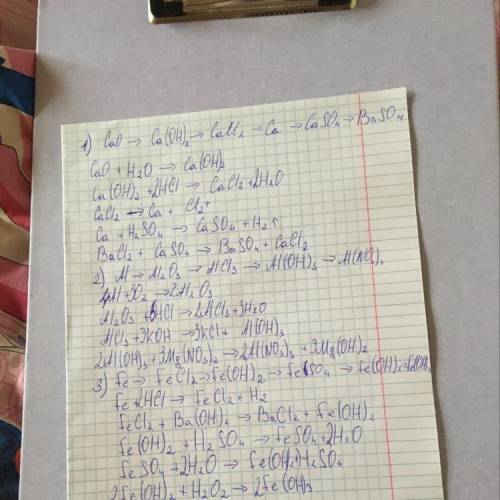 1) CaO → Ca(OH)₂ → CaCl₂ → Ca → CaSO₄ → BaSO₄
CaO + H₂O → Ca(OH)₂
Ca(OH)₂ + 2HCl → CaCl₂ + 2H₂O
CaCl₂ → Ca + Cl₂↑
Ca + H₂SO₄ → CaSO₄ + H₂↑
BaCl₂ + CaSO₄ → BaSO₄ + CaCl₂
2) Al → Al₂O₃ → AlCl₃ → Al(OH)₃ → Al(NO₃)₃
4Al + 3O₂ → 2Al₂O₃
Al₂O₃ + 6HCl → 2AlCl₃ + 3H₂O
AlCl₃ + 3KOH → 3KCl + Al(OH)₃
2Al(OH)₃ + 3Mg(NO₃)₂ → 2Al(NO₃)₃ + 3Mg(OH)₂
3) Fe → FeCl₂ → Fe(OH)₂ → FeSO₄ → Fe(OH)₂ → Fe(OH)₃
Fe + 2HCl → FeCl₂ + H₂
FeCl₂ + Ba(OH)₂ → BaCl₂ + Fe(OH)₂
Fe(OH)₂ + H₂SO₄ → FeSO₄ + 2H₂O
FeSO₄ + 2H₂O → Fe(OH)₂ H₂SO₄
2Fe(OH)₂ + H₂O₂ → 2Fe(OH)₃